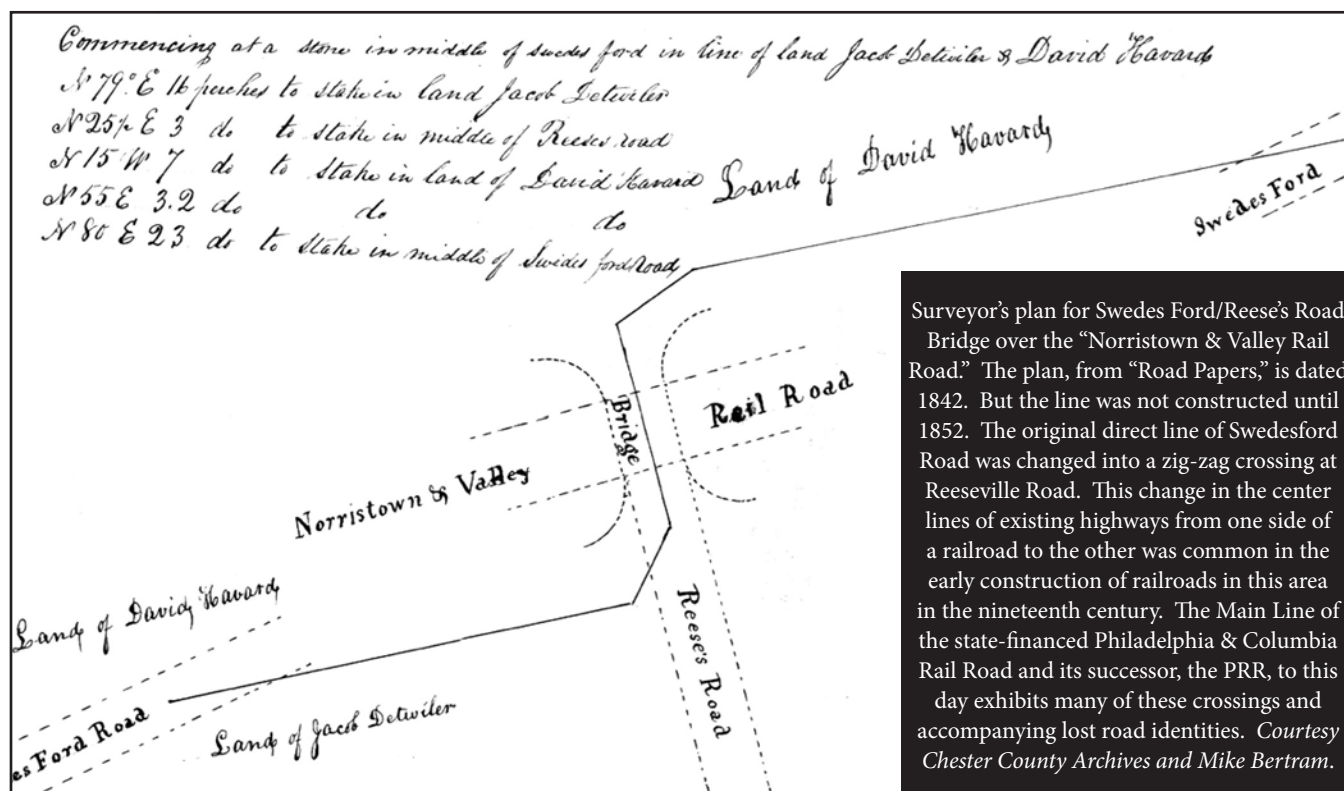 Commencing at a stone in middle of swedes ford in line of land Jacob Detwiler & David Havard
N 79° E 16 perches to stake in land Jacob Detwiler
N 25½ E 3 do to stake in middle of Reeses road
N 15 W 7 do to stake in land of David Havard
N 55 E 3.2 do do do
N 80 E 23 do to stake in middle of Swides ford Road
Land of David Havard
Swedes Ford
Bridge
Rail Road
Norristown & Valley
Land of David Havard
Reese's Road
es Ford Road
Land of Jacob Detwiler
Surveyor's plan for Swedes Ford/Reese's Road
Bridge over the “Norristown & Valley Rail
Road.” The plan, from “Road Papers,” is dated
1842. But the line was not constructed until
1852. The original direct line of Swedesford
Road was changed into a zig-zag crossing at
Reeseville Road. This change in the center
lines of existing highways from one side of
a railroad to the other was common in the
early construction of railroads in this area
in the nineteenth century. The Main Line of
the state-financed Philadelphia & Columbia
Rail Road and its successor, the PRR, to this
day exhibits many of these crossings and
accompanying lost road identities. Courtesy
Chester County Archives and Mike Bertram.